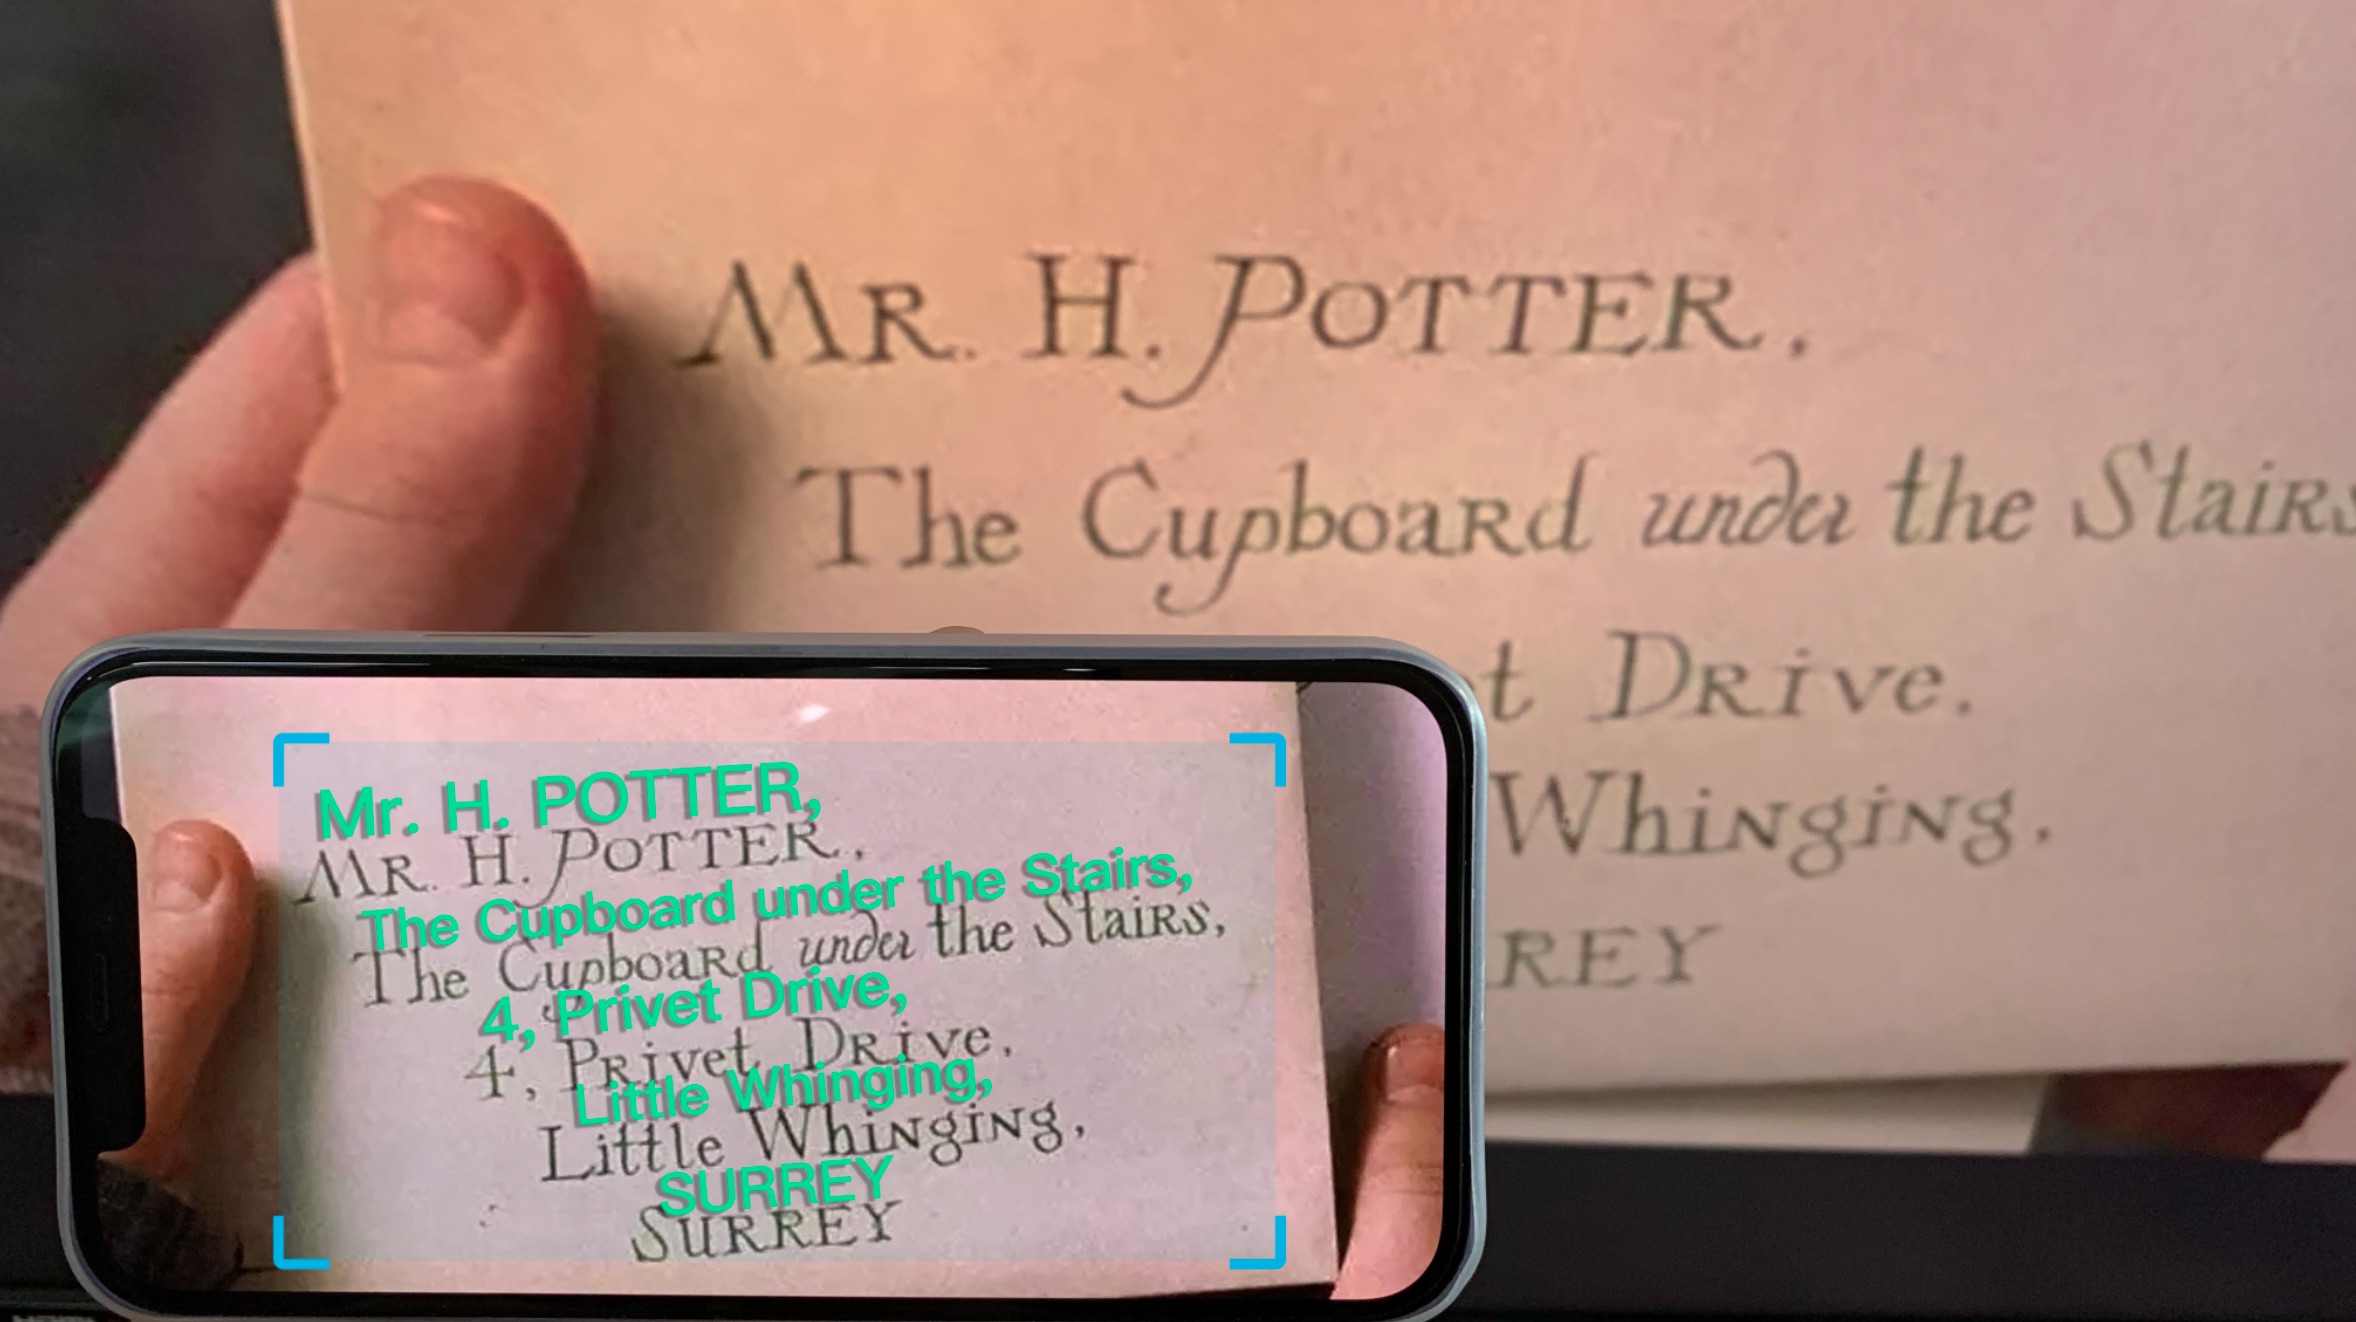 MR. H. POTTER,
The Cupboard under the Stairs
t Drive,
Whinging,
REY
Mr. H. POTTER,
MR. H. POTTER,
The Cupboard under the Stairs,
The Cupboard under the Stairs,
4, Privet Drive,
4, Privet Drive,
Little Whinging,
Little Whinging,
SURREY
SURREY